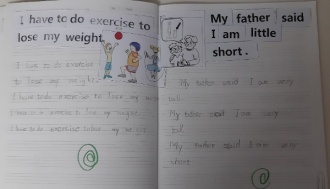 I have to do exercise to
lose my weight.
I have to do exercise
to lose my weight.
I have to do exercise to lose my
I have to do exercise to lose my weight.
I have to do exercise to lose my
My father said
I am little
short.
My father said I am very
tall.
My father said I am very
tall
My father said I am very
short